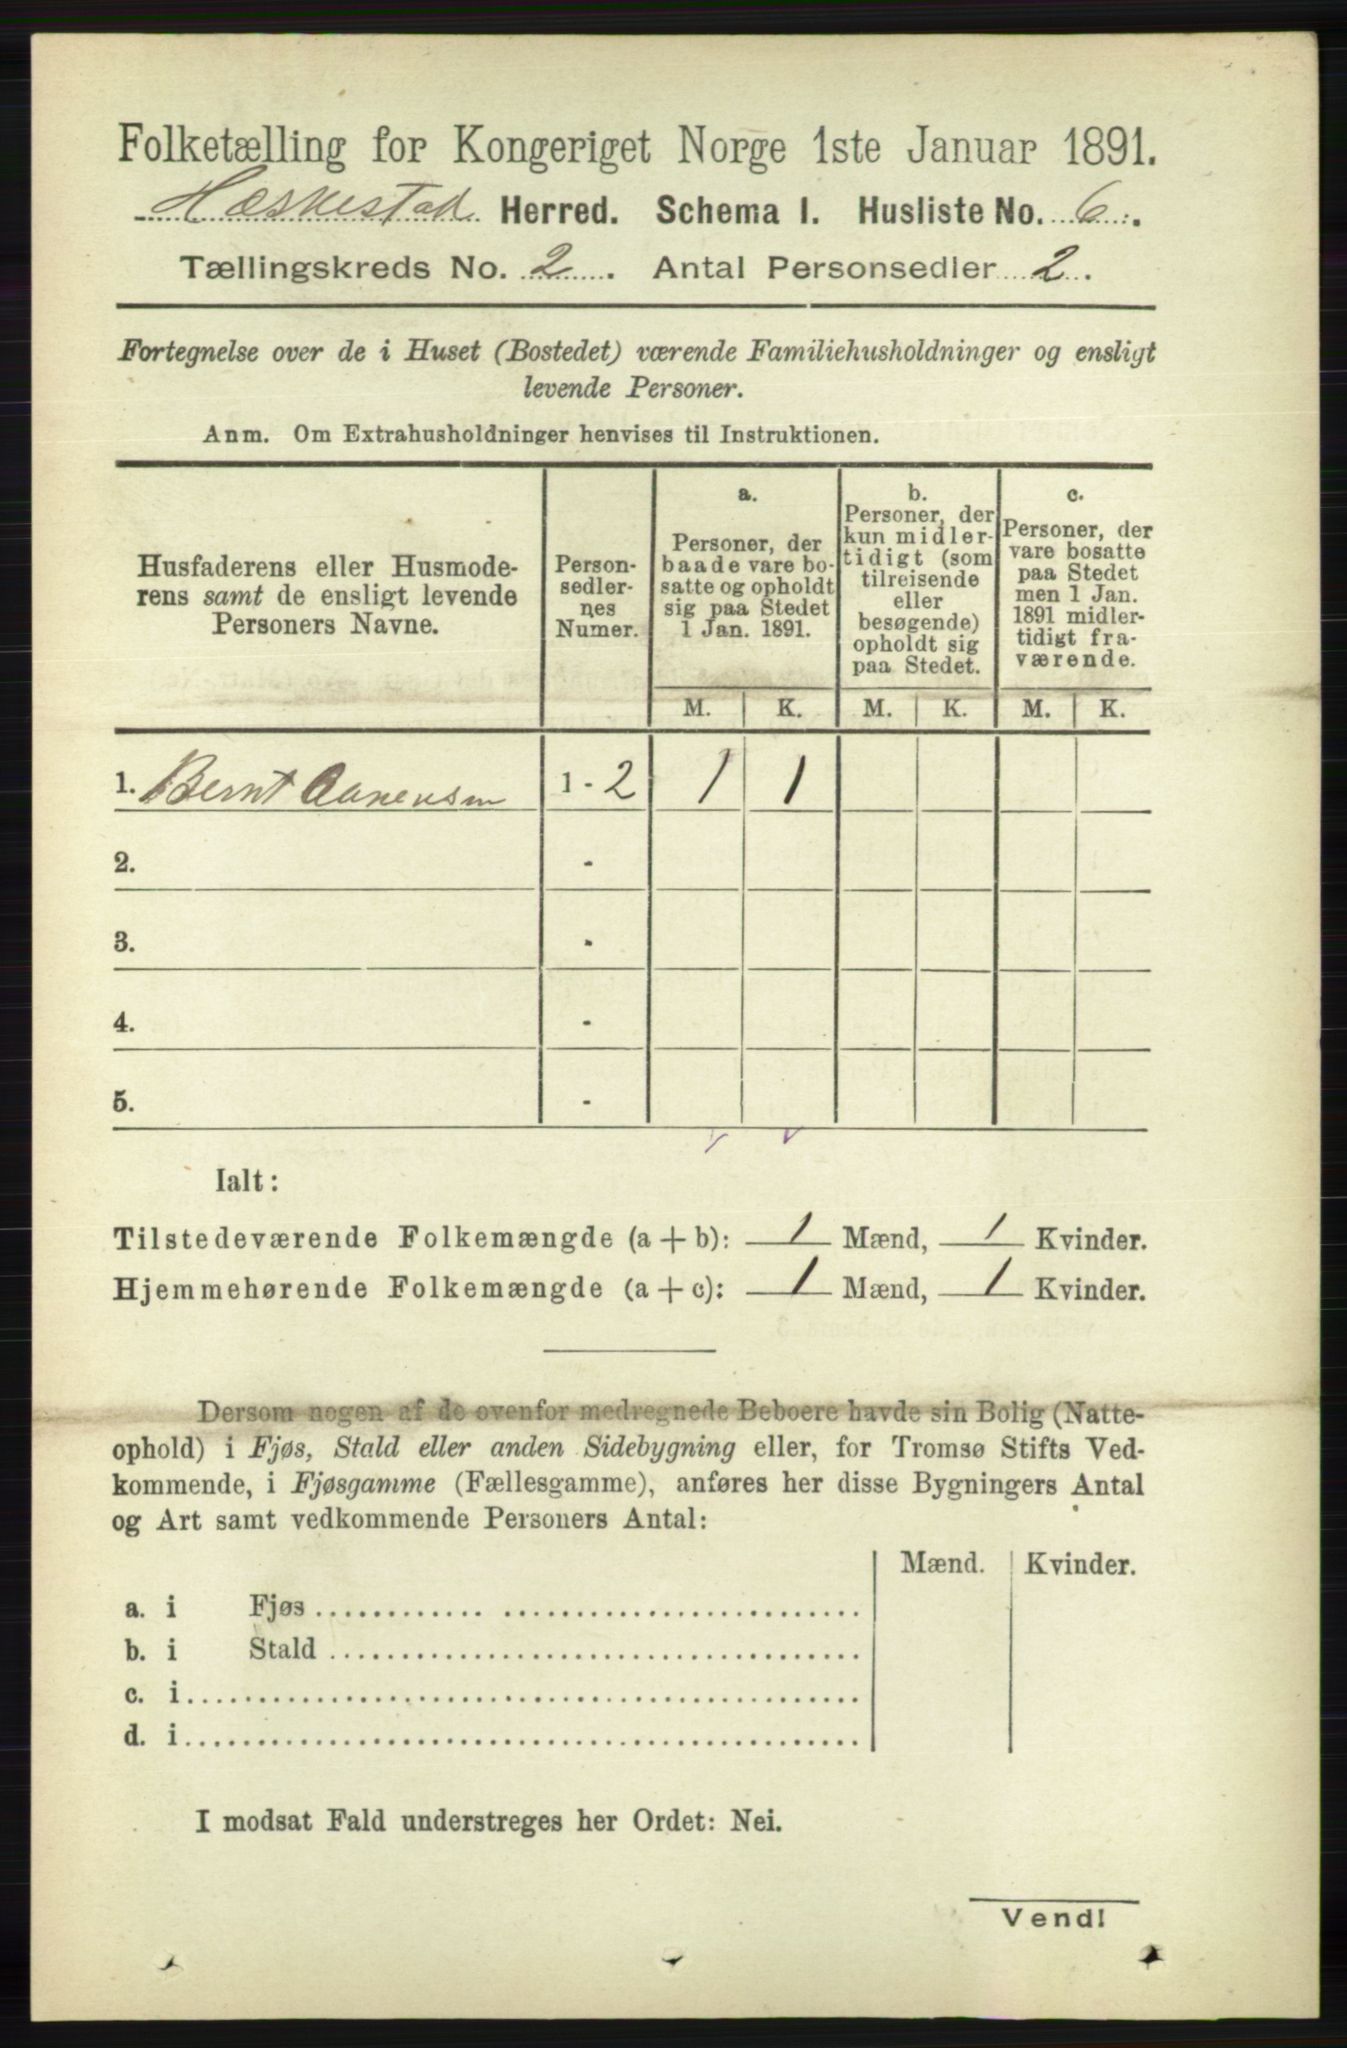 Folketælling for Kongeriget Norge 1ste Januar 1891.
Heskestad Herred. Schema I. Husliste No. 6.
Tællingskreds No. 2. Antal Personsedler 2.
Fortegnelse over de i Huset (Bostedet) værende Familiehusholdninger og ensligt
levende Personer.
Anm. Om Extrahusholdninger henvises til Instruktionen.
Husfaderens eller Husmode-
rens samt de ensligt levende
Personers Navne.
Person-
sedler-
nes
Numer.
a.
Personer, der
baade vare bo-
satte og opholdt
sig paa Stedet
1 Jan. 1891.
b.
Personer, der
kun midler-
tidigt (som
tilreisende
eller
besøgende)
opholdt sig
paa Stedet.
c.
Personer, der
vare bosatte
paa Stedet
men 1 Jan.
1891 midler-
tidigt fra-
værende.
M. K. M. K. M. K.
1. Bernt Aanensen 1 - 2 1 1
2. -
3. -
4. -
5. -
Ialt:
Tilstedeværende Folkemængde (a + b): 1 Mænd, 1 Kvinder.
Hjemmehørende Folkemængde (a + c): 1 Mænd, 1 Kvinder.
Dersom nogen af de ovenfor medregnede Beboere havde sin Bolig (Natte-
ophold) i Fjøs, Stald eller anden Sidebygning eller, for Tromsø Stifts Ved-
kommende, i Fjøsgamme (Fællesgamme), anføres her disse Bygningers Antal
og Art samt vedkommende Personers Antal:
Mænd. Kvinder.
a. i Fjøs
b. i Stald
c. i
d. i
I modsat Fald understreges her Ordet: Nei.
Vend!